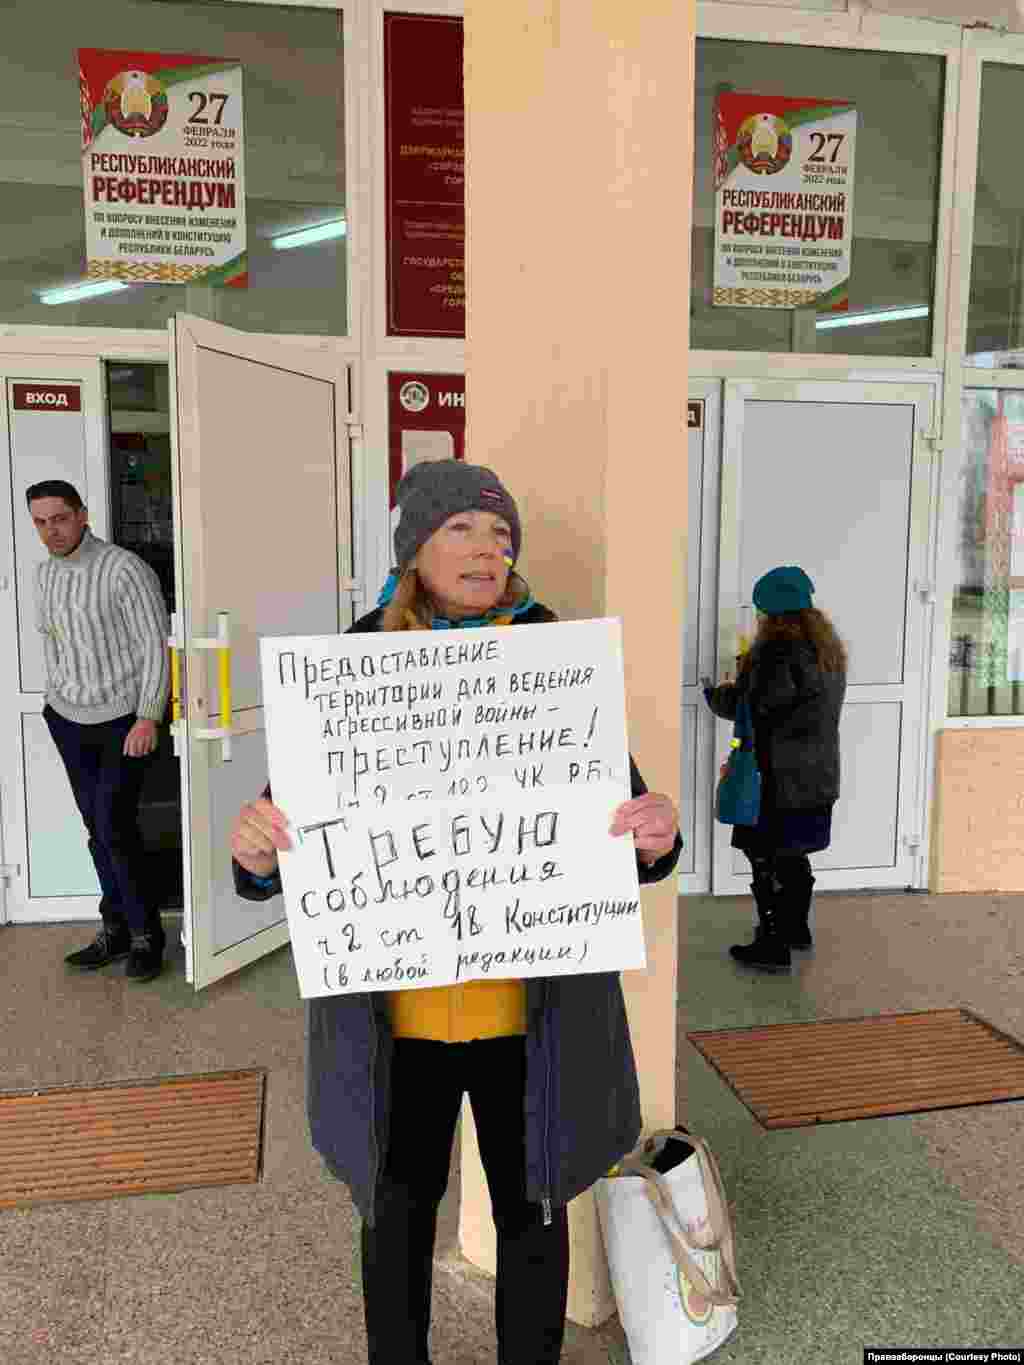 27
ФЕВРАЛЯ
2022 года
РЕСПУБЛИКАНСКИЙ
РЕФЕРЕНДУМ
ПО ВОПРОСУ ВНЕСЕНИЯ ИЗМЕНЕНИЙ
И ДОПОЛНЕНИЙ В КОНСТИТУЦИЮ
РЕСПУБЛИКИ БЕЛАРУСЬ
27
ФЕВРАЛЯ
2022 года
РЕСПУБЛИКАНСКИЙ
РЕФЕРЕНДУМ
ПО ВОПРОСУ ВНЕСЕНИЯ ИЗМЕНЕНИЙ
И ДОПОЛНЕНИЙ В КОНСТИТУЦИЮ
РЕСПУБЛИКИ БЕЛАРУСЬ
ВХОД
ИН
Предоставление
территории для ведения
агрессивной войны –
преступление!
УК РБ
Требую
соблюдения
ч 2 ст 18 Конституции
(в любой редакции)
Правааборонцы (Courtesy Photo)